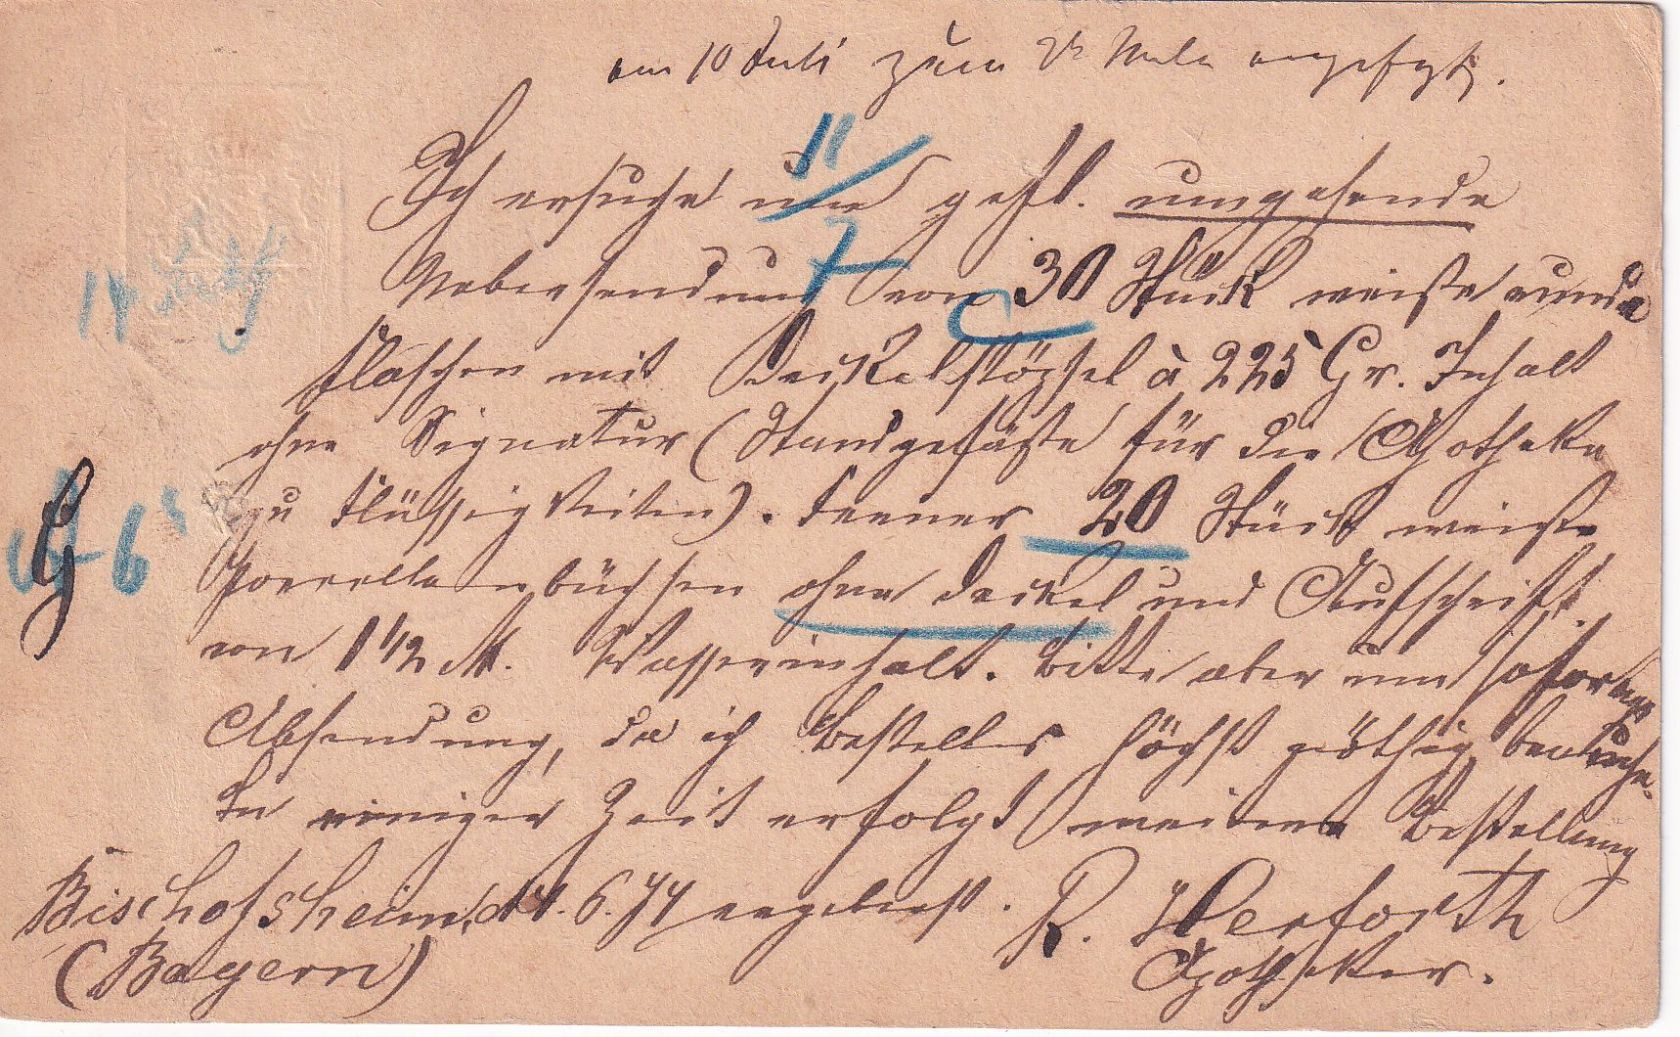 am 10 Juli zum 2ten Male
Ich ersuche um gefl. umgehende
Uebersendung von 30 Stück weiße runde
Flaschen mit Deckelstöpsel à 225 Gr. Inhalt
ohne Signatur (Standgefäße für die Apotheke
zu Flüssigkeiten). Ferner 20 Stück weiße
Porcellanbüchsen ohne Deckel und Aufschrift
von 1 1/2 Wasserinhalt. Bitte aber um sofortige
Absendung, da ich Bestelltes höchst nöthig brauche.
In einiger Zeit erfolgt weitere Bestellung
Bischofsheim, d. 6. 74 ergebenst. R. Werforth
(Bayern) Apotheker.
11
7
6